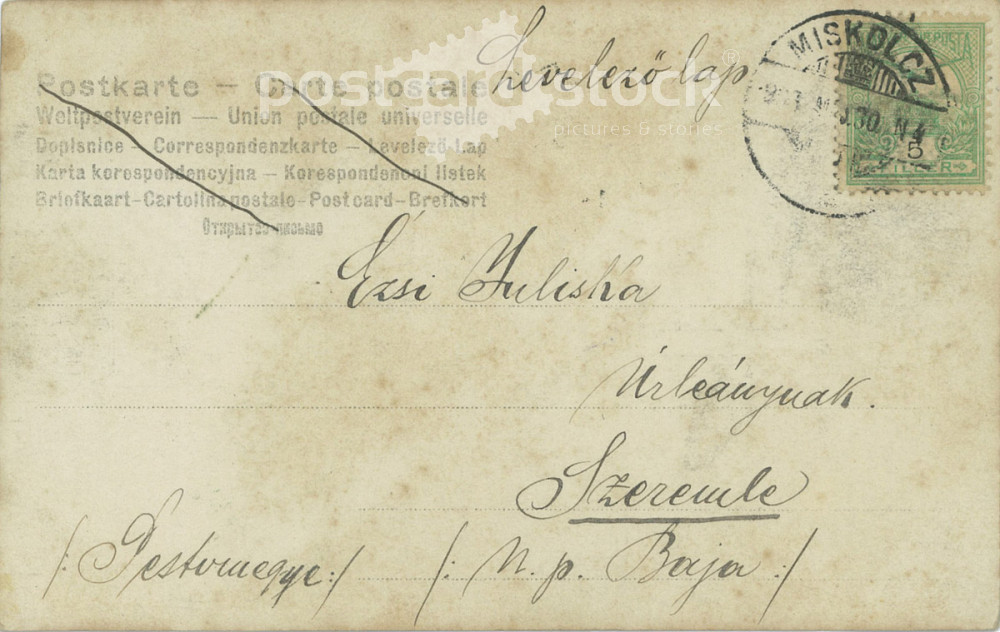 Levelező lap
Postkarte — Carte postale
Weltpostverein — Union postale universelle
Dopisnice — Correspondenzkarte — Levelező-Lap
Karta korespondencyjna — Korespondencni listek
Briefkaart-Cartolina postale-Post card-Brefkort
Открытое письмо
MISKOLCZ
5
postcard stock®
pictures & stories
Ézsi Juliska
Úrleánynak.
Szeremle
/: Pestomegye :/ /: N. p. Baja :/